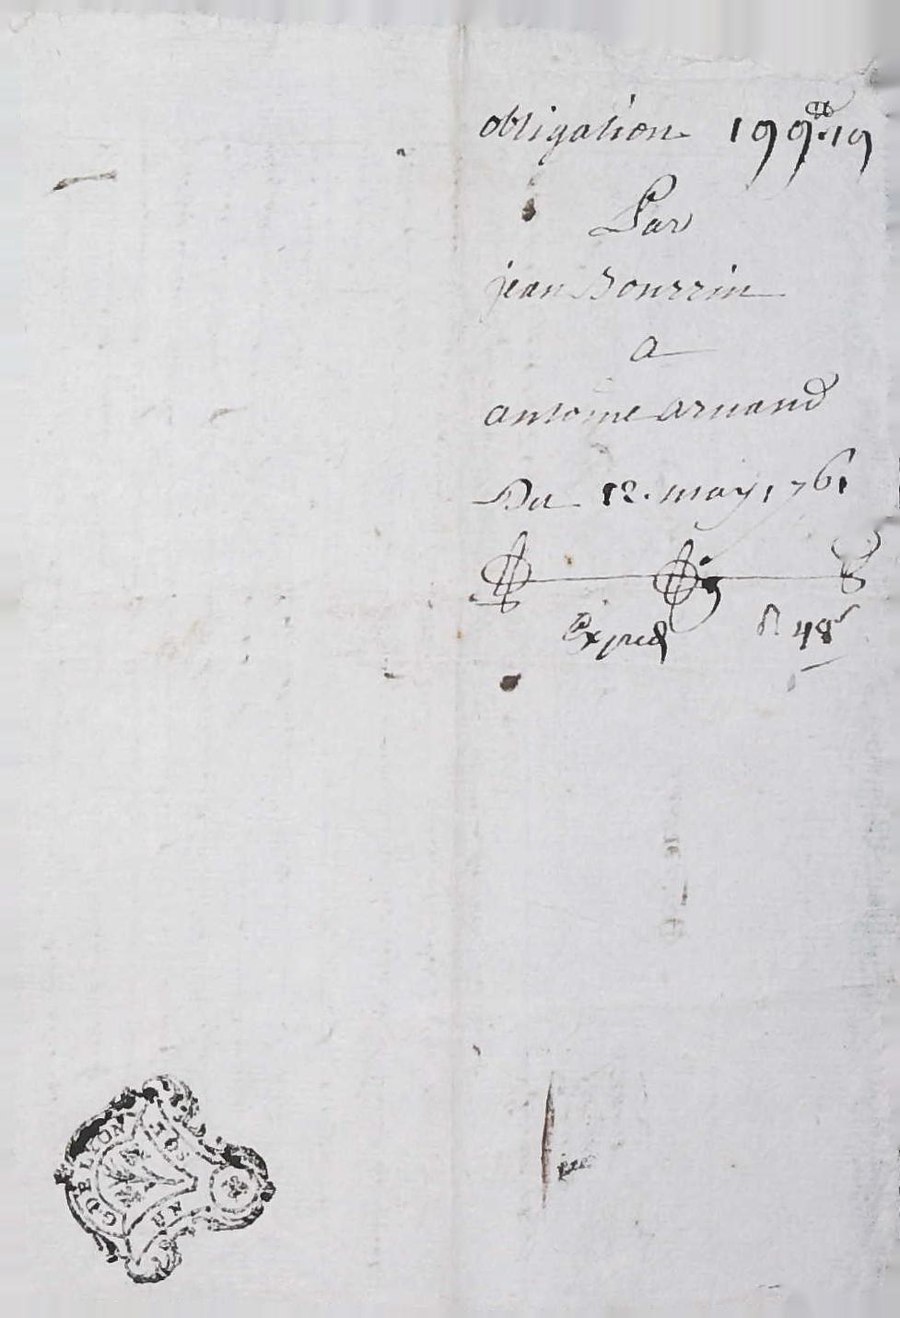 obligation 199ᵗᵗ·19
Par
jean Bourrin
a
antoine arnaud
Du 12. may 1761
Exped R 48ˢ
G DE LYON
UN SOL